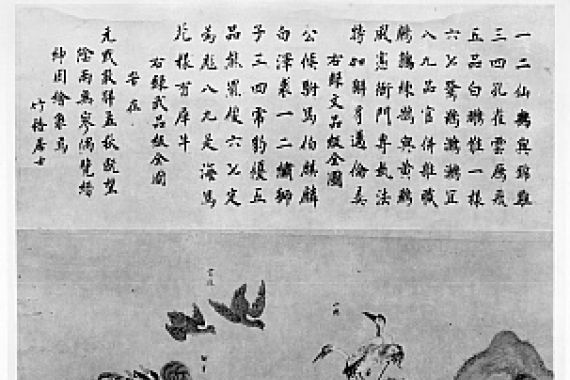 一二仙鶴與錦雞
三四孔雀雲鴈飛
五品白鷴惟一樣
六七鷺鷥鸂鶒宜
八九品官併雜職
鵪鶉練鵲與黃鸝
風憲衙門專執法
特加獬豸邁倫彝
右錄文品級全圖
公侯駙馬伯麒麟
白澤裘一二繡獅
子三四虎豹優五
品熊羆俊六七定
為彪八九是海馬
花樣有犀牛
右錄武品級全圖
在
孟秋既望
陰雨無寥偶覽縉
紳因繪象焉
竹 居士